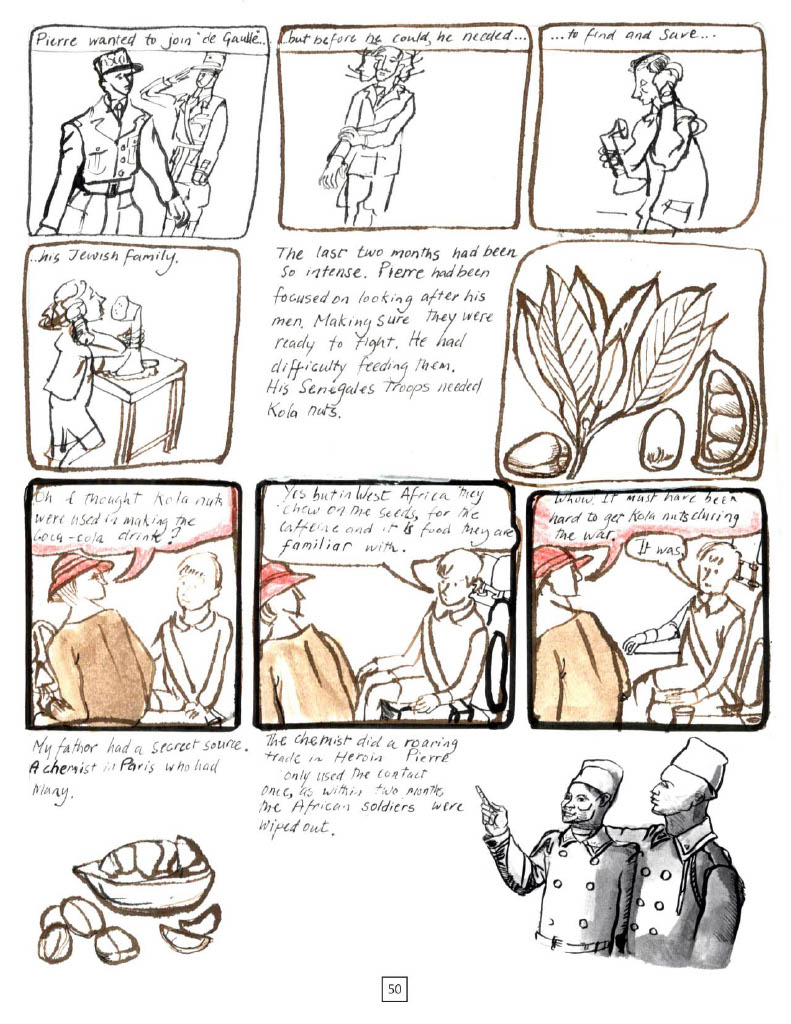 Pierre wanted to join de Gaulle...
...but before he could, he needed...
...to find and save...
...his Jewish family.
The last two months had been
so intense. Pierre had been
focused on looking after his
men. Making sure they were
ready to fight. He had
difficulty feeding them.
His Senegales Troops needed
Kola nuts.
Oh I thought Kola nuts
were used in making the
Coca-cola drink?
Yes but in West Africa they
chew on the seeds, for the
caffeine and it is food they are
familiar with.
Whow. It must have been
hard to get Kola nuts during
the war.
It was.
My father had a secret source.
A chemist in Paris who had
many.
The chemist did a roaring
trade in Heroin Pierre
only used the contact
once, as within two months
the African soldiers were
wiped out.
50